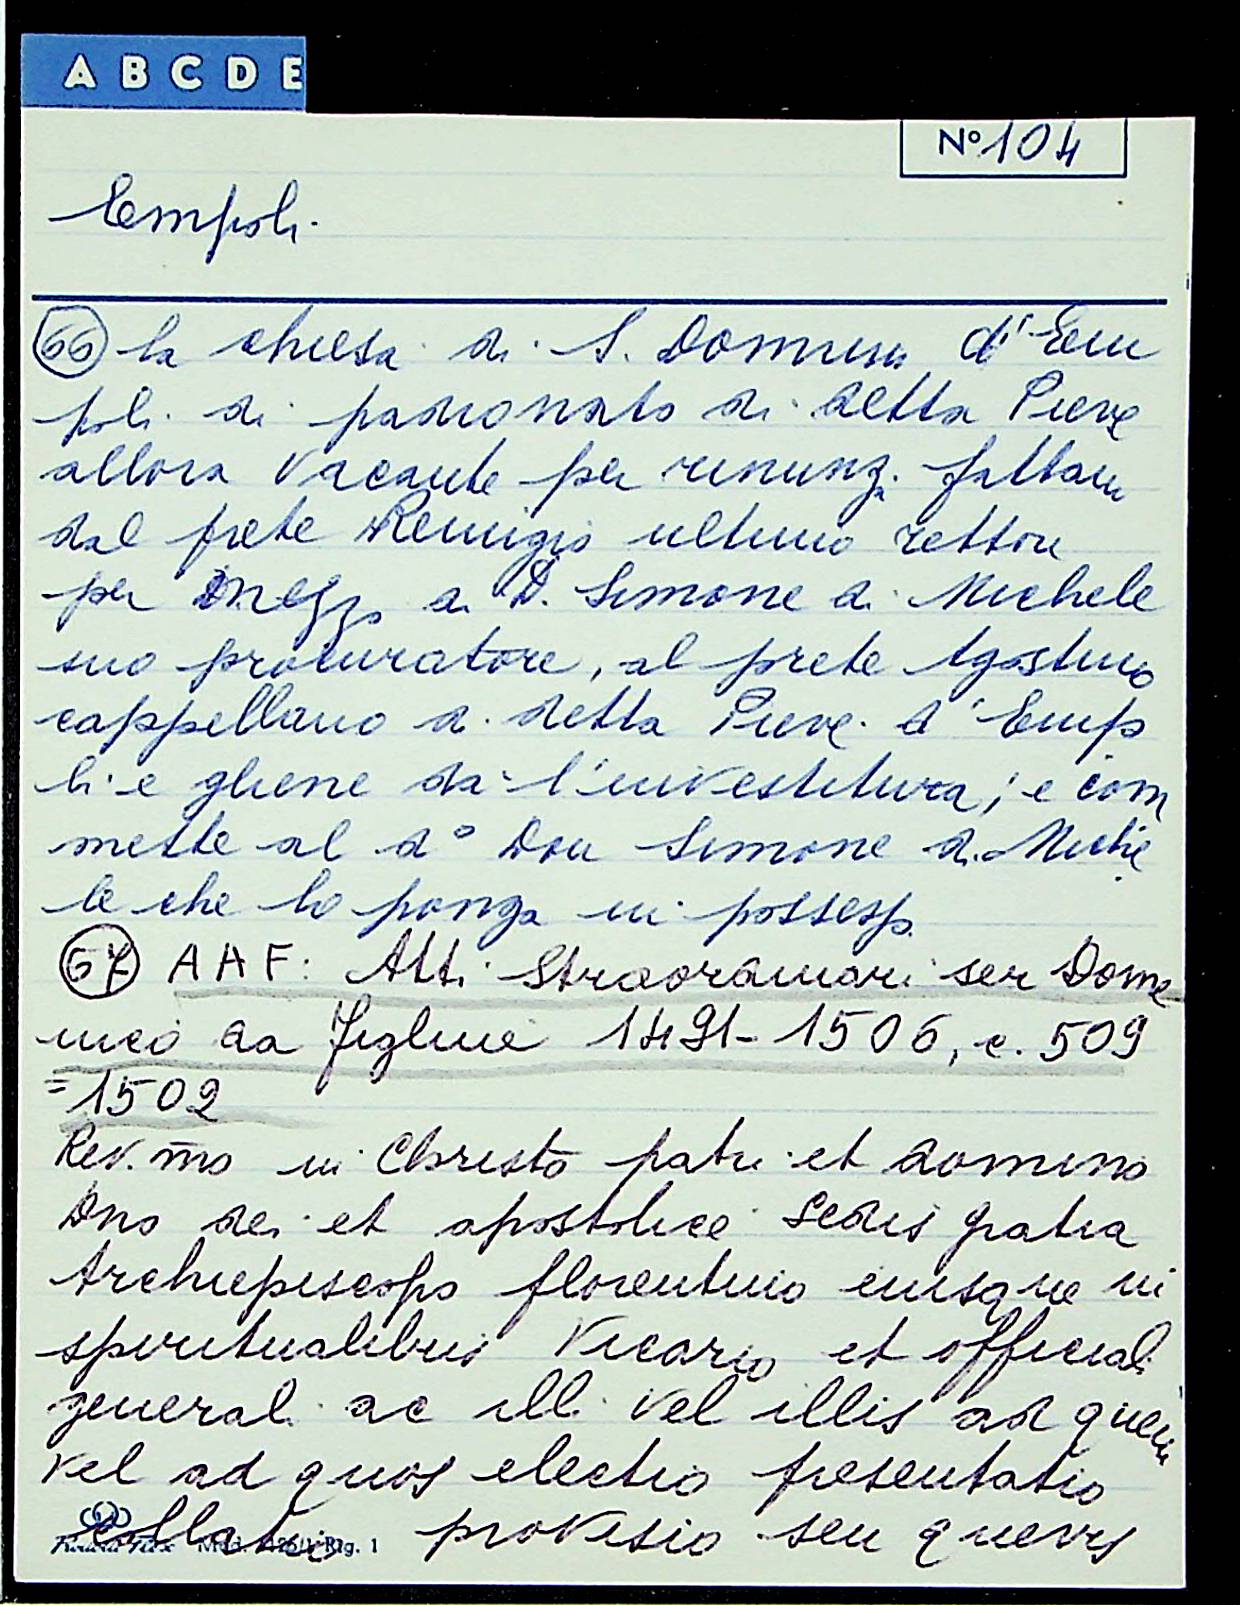 A B C D E
Nº 104
Empoli.
66 la chiesa di S. Donnino d'Em
poli di padronato di detta Pieve
allora vacante per rinunz. fattane
dal prete Remigio ultimo rettore
per mezzo di D. Simone di Michele
suo procuratore, al prete Agostino
cappellano di detta Pieve d'Empo
li e gliene da l'investitura; e com
mette al dº Don Simone di Miche
le che lo ponga in possesso
67 AAF: Atti Straordinari ser Dome
nico da Figline 1491-1506, c. 509
=1502
Rev.mo in Christo patri et domino
Dno dei et apostolice sedis gratia
Archiepiscopo florentino eiusque in
spiritualibus Vicario et official
generali ac illi vel illis ad quem
vel ad quos electio presentatio
collatio provisio seu quevis
Mod. Rig. 1